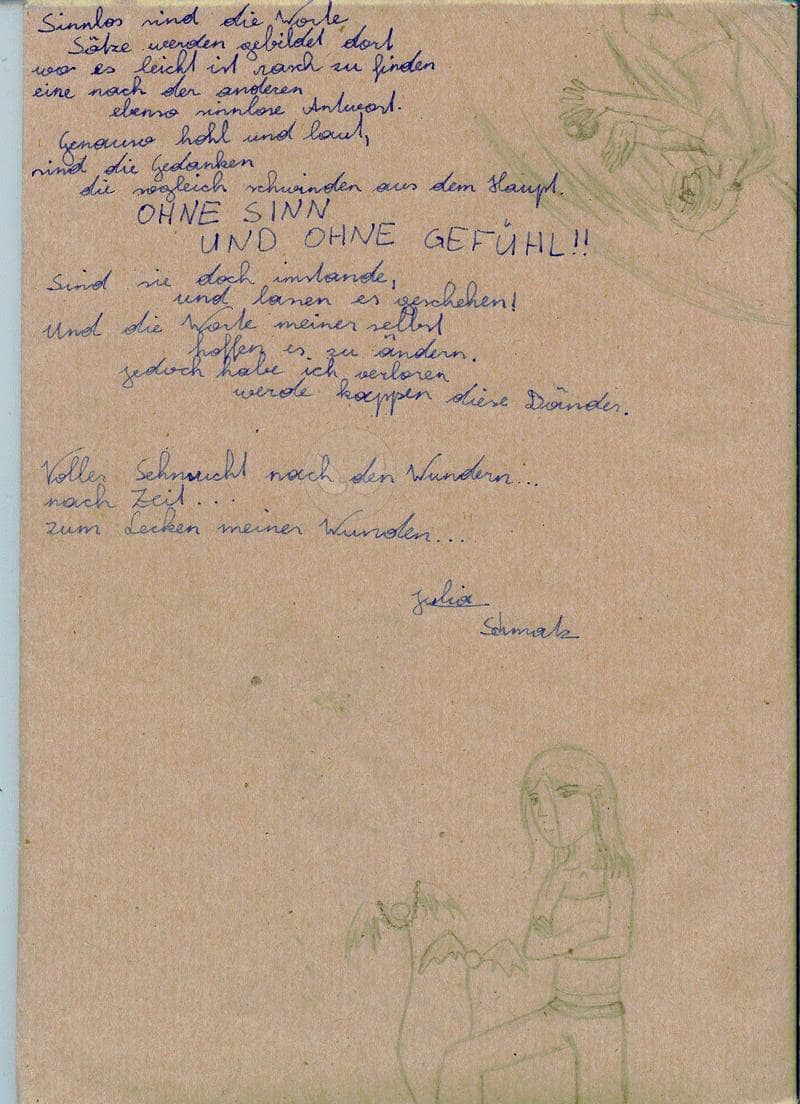 Sinnlos sind die Worte
Sätze werden gebildet dort
wo es leicht ist rasch zu finden
eine nach der anderen
ebenso sinnlose Antwort.
Genauso hohl und laut,
sind die Gedanken
die sogleich schwinden aus dem Haupt.
OHNE SINN
UND OHNE GEFÜHL!!
Sind sie doch imstande,
und lassen es geschehen!
Und die Worte meiner selbst
hoffen es zu ändern.
jedoch habe ich verloren
werde kappen diese Bänder.
Voller Sehnsucht nach den Wundern...
nach Zeit...
zum Lecken meiner Wunden...
Julia
Schmalz